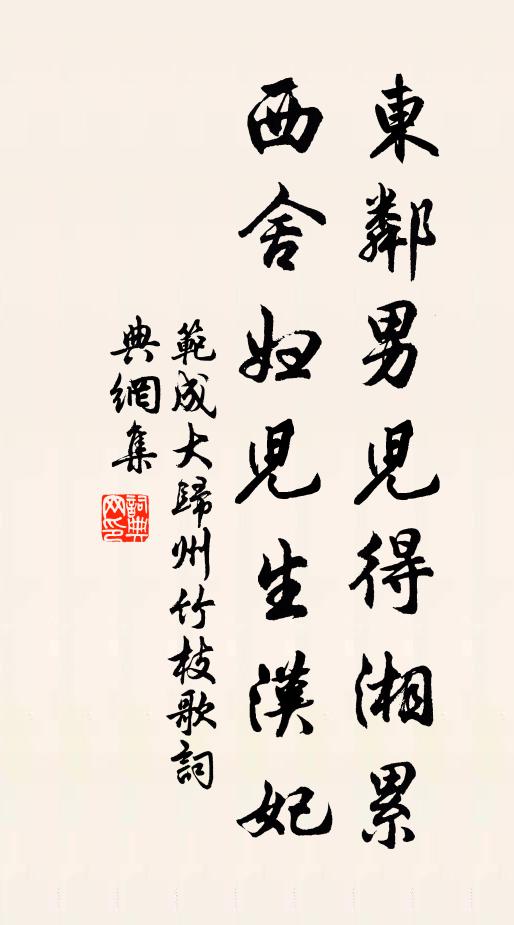 東鄰男兒得湘累
西舍婦兒生漢妃
範成大歸州竹枝歌詞
典網集
詞典網印